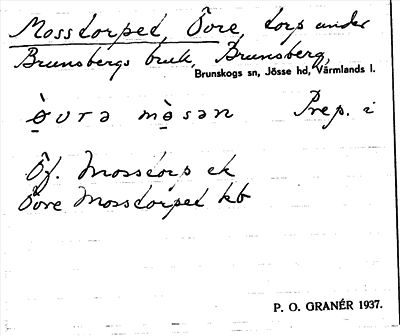 Mosstorpet, Övre, torp under
Brunsbergs bruk, Brunsberg,
Brunskogs sn, Jösse hd, Värmlands l.
ø̀vrə mò̱sən Prep. i
Öf. Mosstorp ek
Övre Mosstorpet kb
P. O. GRANÉR 1937.